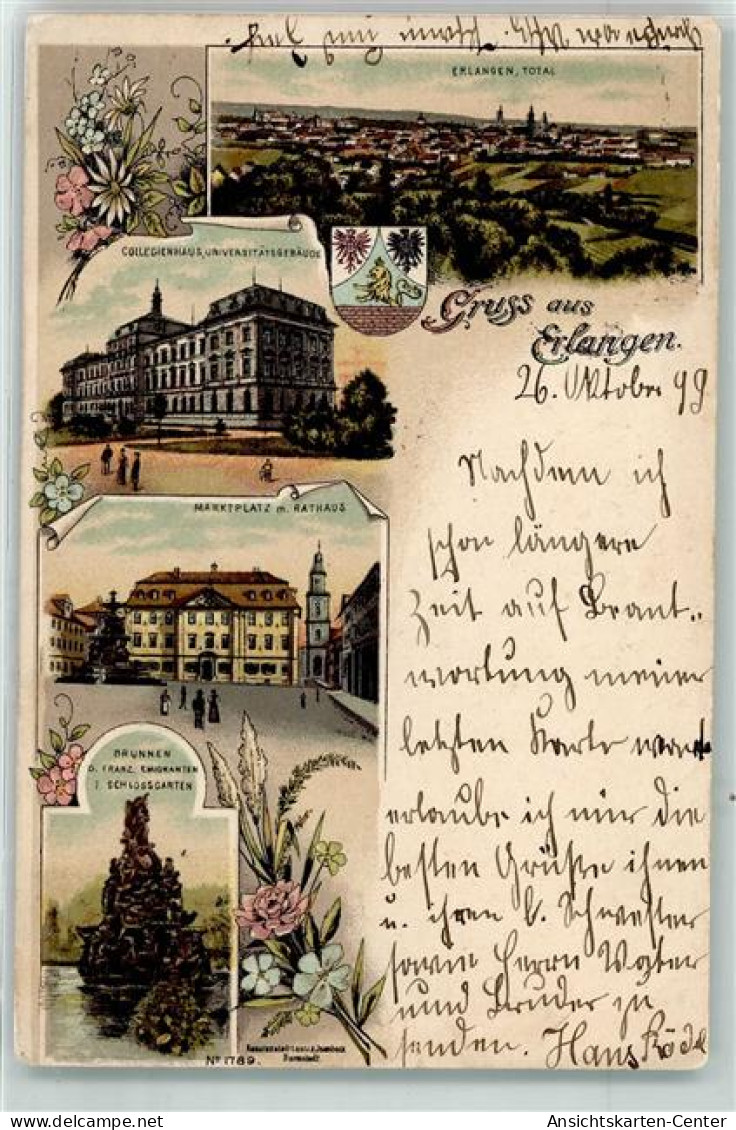 ERLANGEN, TOTAL
COLLEGIENHAUS, UNIVERSITÄTSGEBÄUDE
Gruss aus
Erlangen.
26. Oktober 99
Nachdem ich
schon längere
Zeit auf Beant-
wortung meiner
letzten Karte warte
erlaube ich mir die
besten Grüße ihnen
u. ihren l. Schwester
sowie Herrn Vater
und Bruder zu
senden. Hans
MARKTPLATZ m. RATHAUS
BRUNNEN
D. FRANZ. EMIGRANTEN
I. SCHLOSSGARTEN
No 1789.
Darmstadt
Ansichtskarten-Center